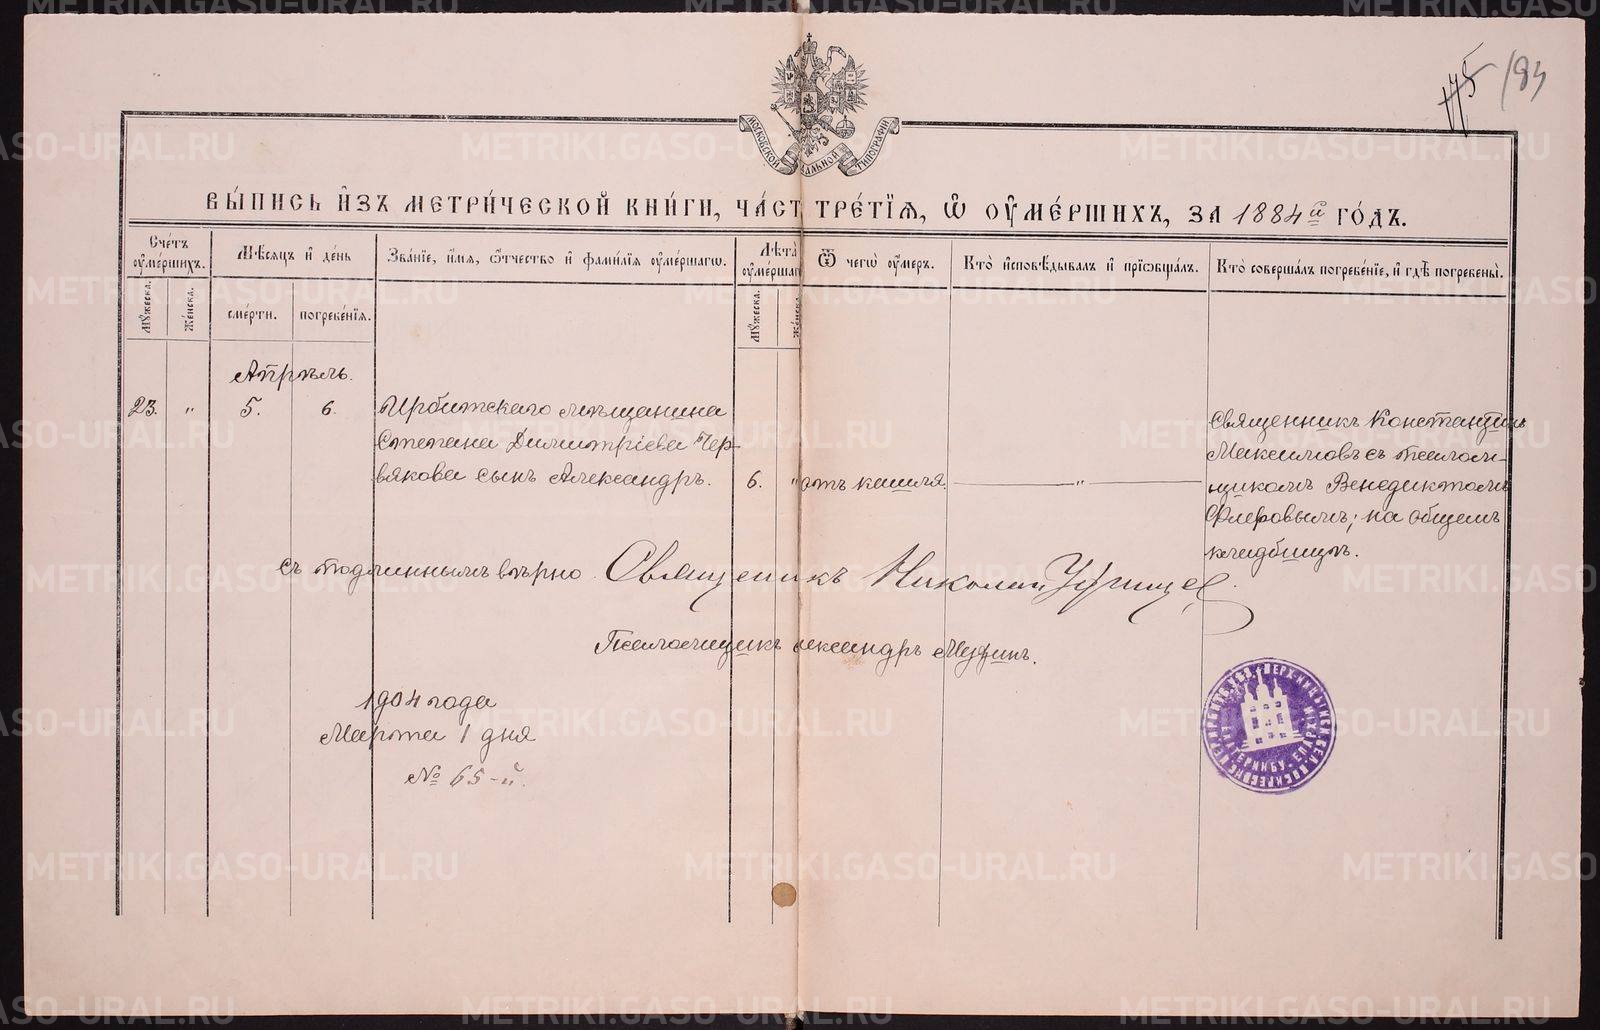 175 183
МОСКОВСКОЙ СѴНОДАЛЬНОЙ ТИПОГРАФІИ
ВЫ́ПИСЬ И҆ЗЪ МЕТРИ́ЧЕСКОЙ КНИ́ГИ, ЧА́СТ ТРЕ́ТІЯ, Ѡ҆ ОУ҆МЕ́РШИХЪ, ЗА 1884й ГО́ДЪ.
Сче́тъ оу҆ме́ршихъ.
Мꙋ́жеска.
Же́нска.
Мѣ́сяцъ и҆ де́нь
сме́рти.
погребе́нія.
Зва́ніе, и҆́мя, ѻ҆́тчество и҆ фами́лія оу҆ме́ршагѡ.
Лѣ́та оу҆ме́ршаг
Мꙋ́жеска.
Же́нска
Ѿ чегѡ̀ оу҆́меръ.
Кто̀ и҆сповѣ́дывалъ и҆ прїѡбща́лъ.
Кто̀ соверша́лъ погребе́ніе, и҆ гдѣ̀ погребены̀.
Апрѣль.
23. " 5. 6.
Ирбитскаго мѣщанина
Степана Димитріева Чер-
вякова сынъ Александръ.
6. "
отъ кашля.
"
Священникъ Константинъ
Максимовъ съ псалом-
щикомъ Венедиктомъ
Флеровымъ; на общемъ
кладбищѣ.
Съ подлиннымъ вѣрно. Священникъ Николай
Псаломщикъ лександръ
1904 года
Марта 1 дня
№ 65-й.
METRIKI.GASO-URAL.RU